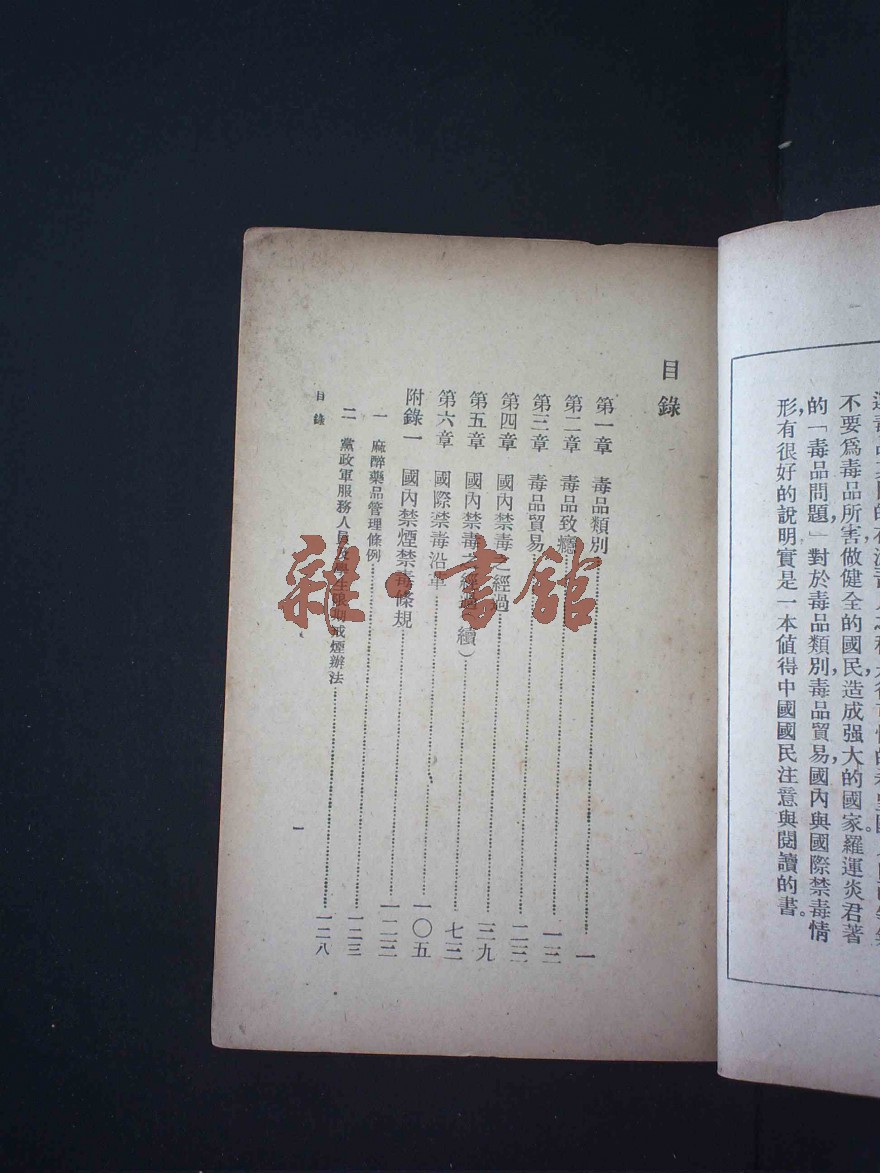 不要爲毒品所害，做健全的國民，造成强大的國家。羅運炎君著
的「毒品問題」對於毒品類別，毒品貿易，國內與國際禁毒情
形，有很好的說明，實是一本值得中國國民注意與閱讀的書。
目錄
第一章 毒品類別……一
第二章 毒品致癮……一三
第三章 毒品貿易……二三
第四章 國內禁毒之經過……三九
第五章 國內禁毒之經過（續）……七三
第六章 國際禁毒沿革……一〇五
附錄一 國內禁煙禁毒條規……一二三
一 麻醉藥品管理條例……一二三
二 黨政軍服務人員及學生限期戒煙辦法……一二八
目錄
一
雜·書館